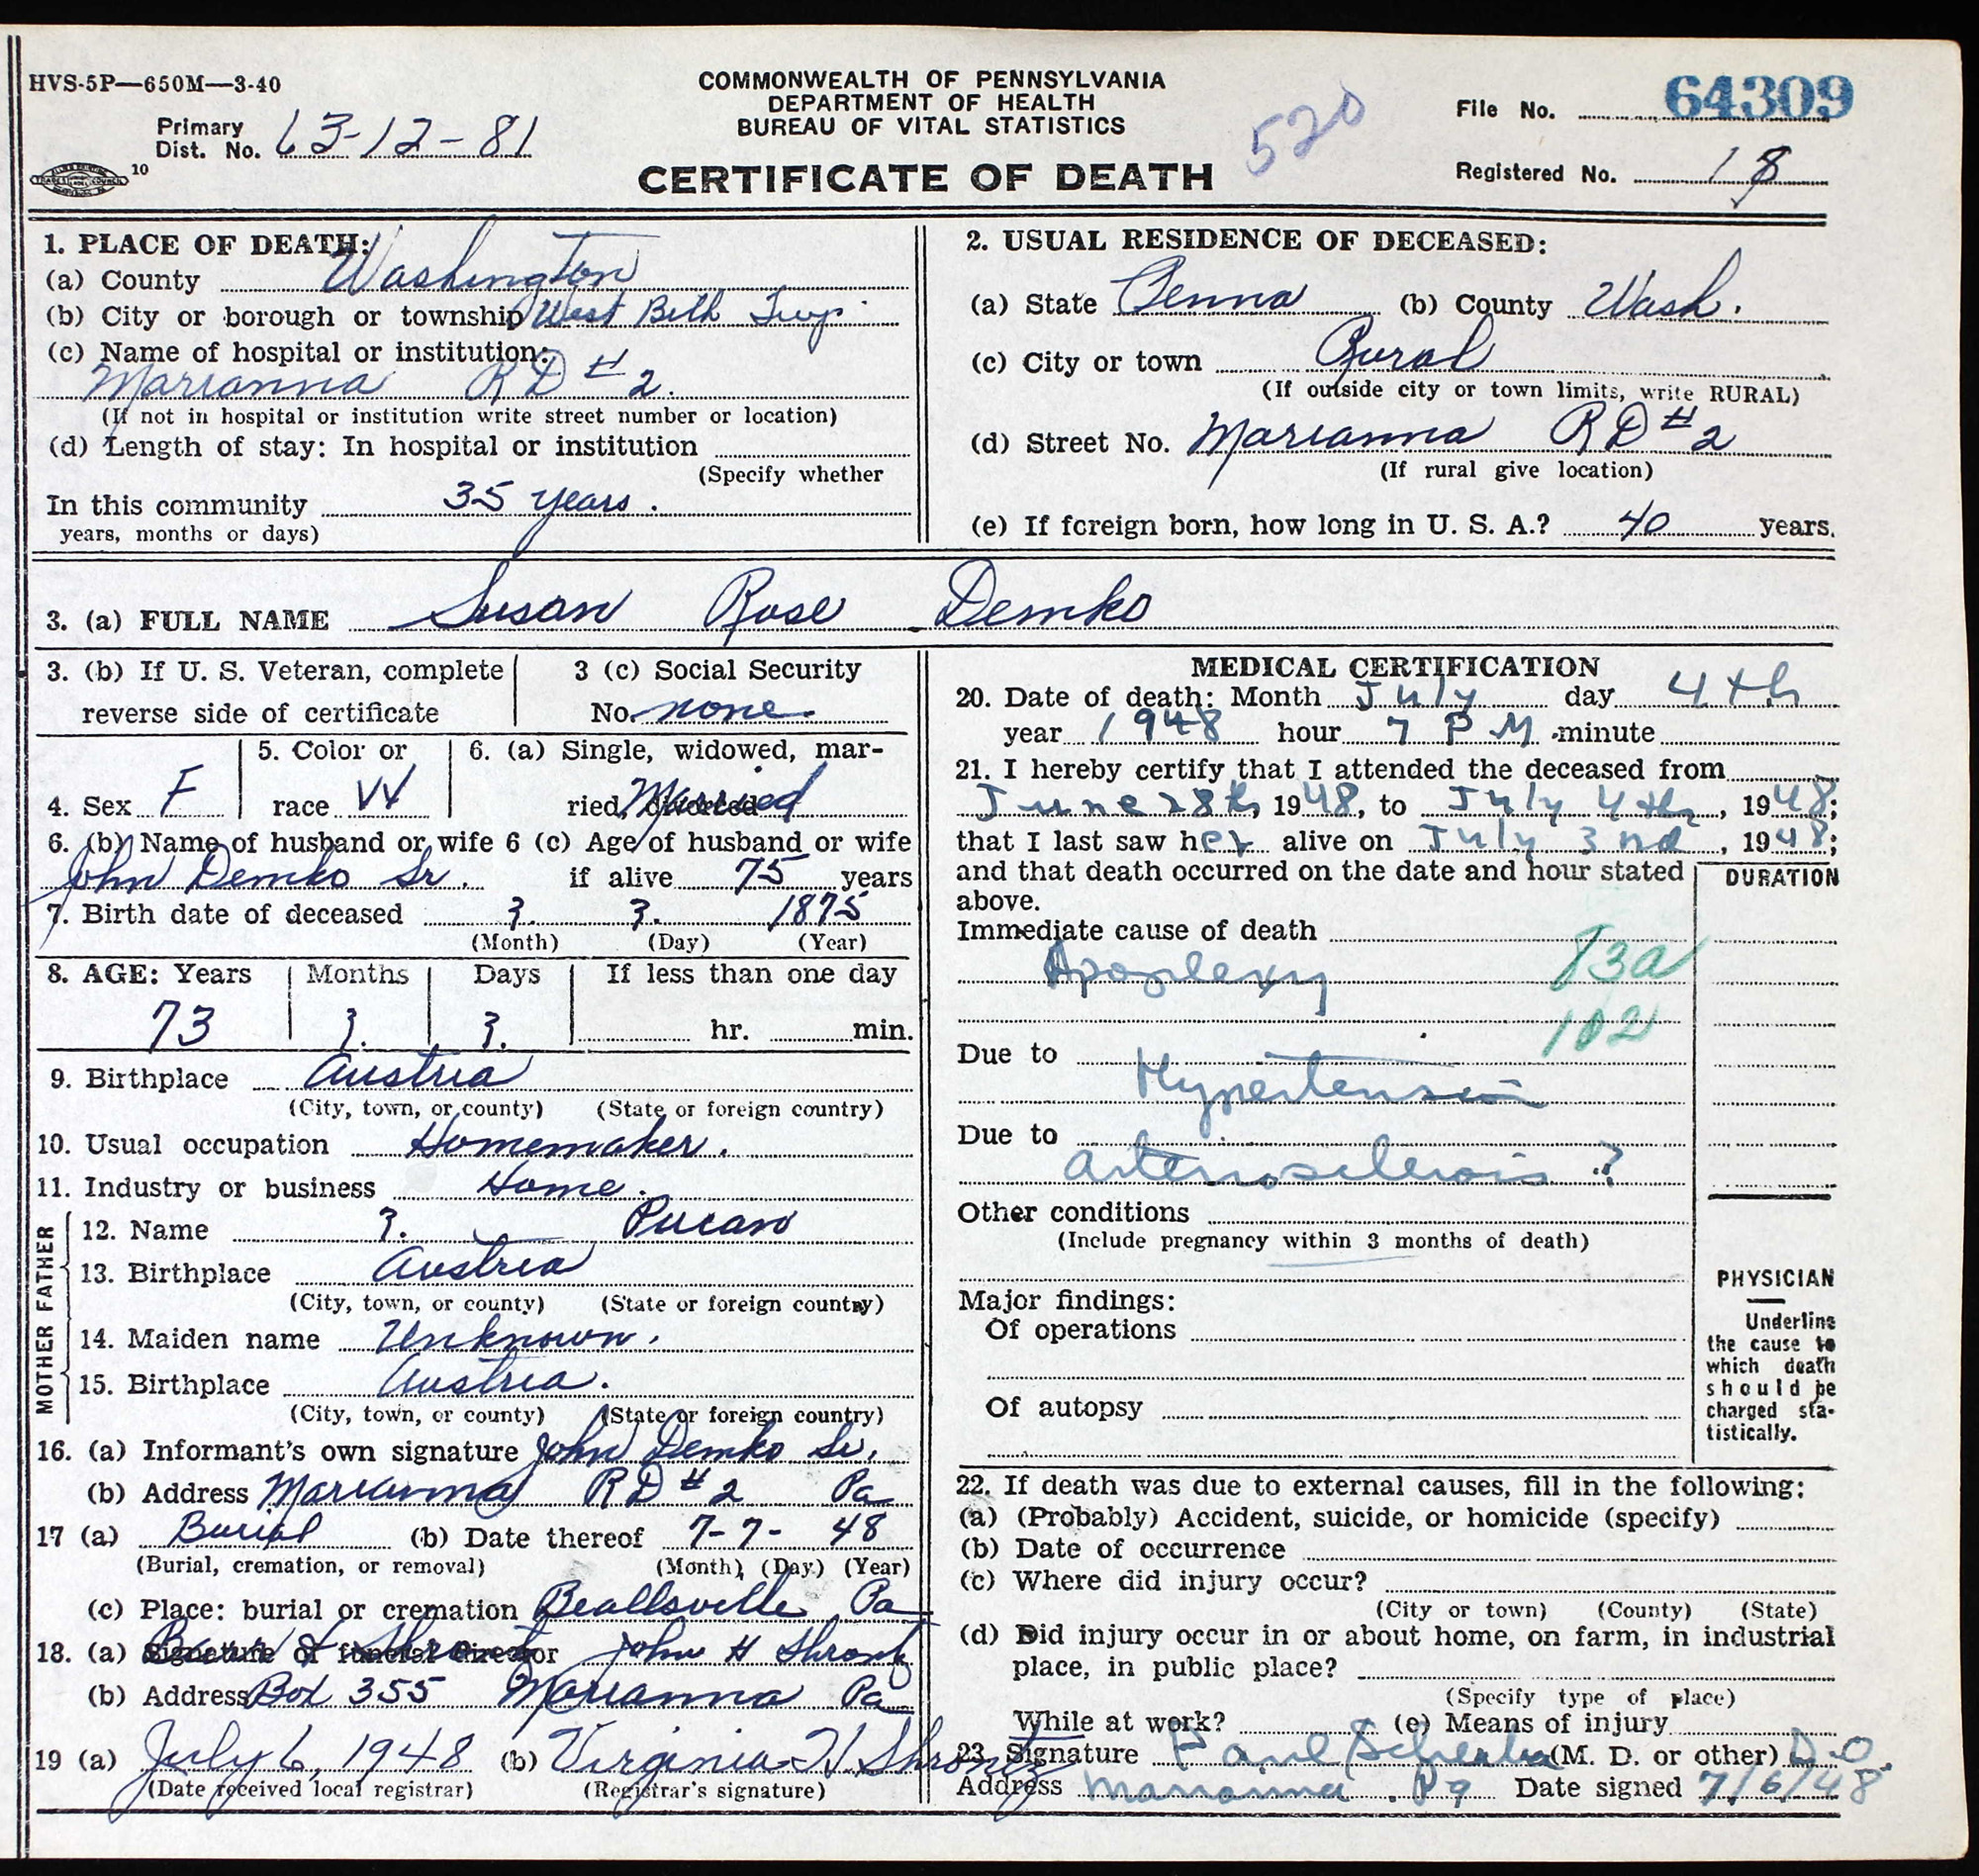 HVS-5P—650M—3-40
COMMONWEALTH OF PENNSYLVANIA
DEPARTMENT OF HEALTH
BUREAU OF VITAL STATISTICS
CERTIFICATE OF DEATH
520
Primary
Dist. No. 63-12-81
10
File No. 64309
Registered No. 18
1. PLACE OF DEATH:
(a) County Washington
(b) City or borough or township West Beth Twp.
(c) Name of hospital or institution:
Marianna RD #2.
(If not in hospital or institution write street number or location)
(d) Length of stay: In hospital or institution
(Specify whether
In this community 35 years.
years, months or days)
2. USUAL RESIDENCE OF DECEASED:
(a) State Penna (b) County Wash.
(c) City or town Rural
(If outside city or town limits, write RURAL)
(d) Street No. Marianna RD #2
(If rural give location)
(e) If foreign born, how long in U. S. A.? 40 years.
3. (a) FULL NAME Susan Rose Demko
3. (b) If U. S. Veteran, complete
reverse side of certificate
3 (c) Social Security
No. none
4. Sex F
5. Color or
race W
6. (a) Single, widowed, mar-
ried, divorced Married
6. (b) Name of husband or wife 6 (c) Age of husband or wife
John Demko Sr. if alive 75 years
7. Birth date of deceased ?. ?. 1875
(Month) (Day) (Year)
8. AGE: Years Months Days If less than one day
73 ?. ?. hr. min.
9. Birthplace Austria
(City, town, or county) (State or foreign country)
10. Usual occupation Homemaker.
11. Industry or business Home.
FATHER
12. Name ?. Pucan
13. Birthplace Austria
(City, town, or county) (State or foreign country)
MOTHER
14. Maiden name Unknown.
15. Birthplace Austria.
(City, town, or county) (State or foreign country)
16. (a) Informant's own signature John Demko Sr.
(b) Address Marianna RD #2 Pa
17 (a) Burial (b) Date thereof 7-7-48
(Burial, cremation, or removal) (Month) (Day.) (Year)
(c) Place: burial or cremation Beallsville Pa
18. (a) Signature of funeral director John H Shrontz
(b) Address Box 355 Marianna Pa
19 (a) July 6, 1948 (b) Virginia H Shrontz
(Date received local registrar) (Registrar's signature)
MEDICAL CERTIFICATION
20. Date of death: Month July day 4th
year 1948 hour 7 PM minute
21. I hereby certify that I attended the deceased from
June 28th, 1948, to July 4th, 1948;
that I last saw her alive on July 3nd, 1948;
and that death occurred on the date and hour stated
above.
DURATION
Immediate cause of death
Apoplexy 83a
102
Due to
Hypertension
Due to
arteriosclerosis ?
Other conditions
(Include pregnancy within 3 months of death)
Major findings:
Of operations
Of autopsy
PHYSICIAN
Underline
the cause to
which death
should be
charged sta-
tistically.
22. If death was due to external causes, fill in the following:
(a) (Probably) Accident, suicide, or homicide (specify)
(b) Date of occurrence
(c) Where did injury occur?
(City or town) (County) (State)
(d) Did injury occur in or about home, on farm, in industrial
place, in public place?
(Specify type of place)
While at work? (e) Means of injury
23. Signature Paul (M. D. or other) D.O.
Address Marianna. Pa Date signed 7/6/48